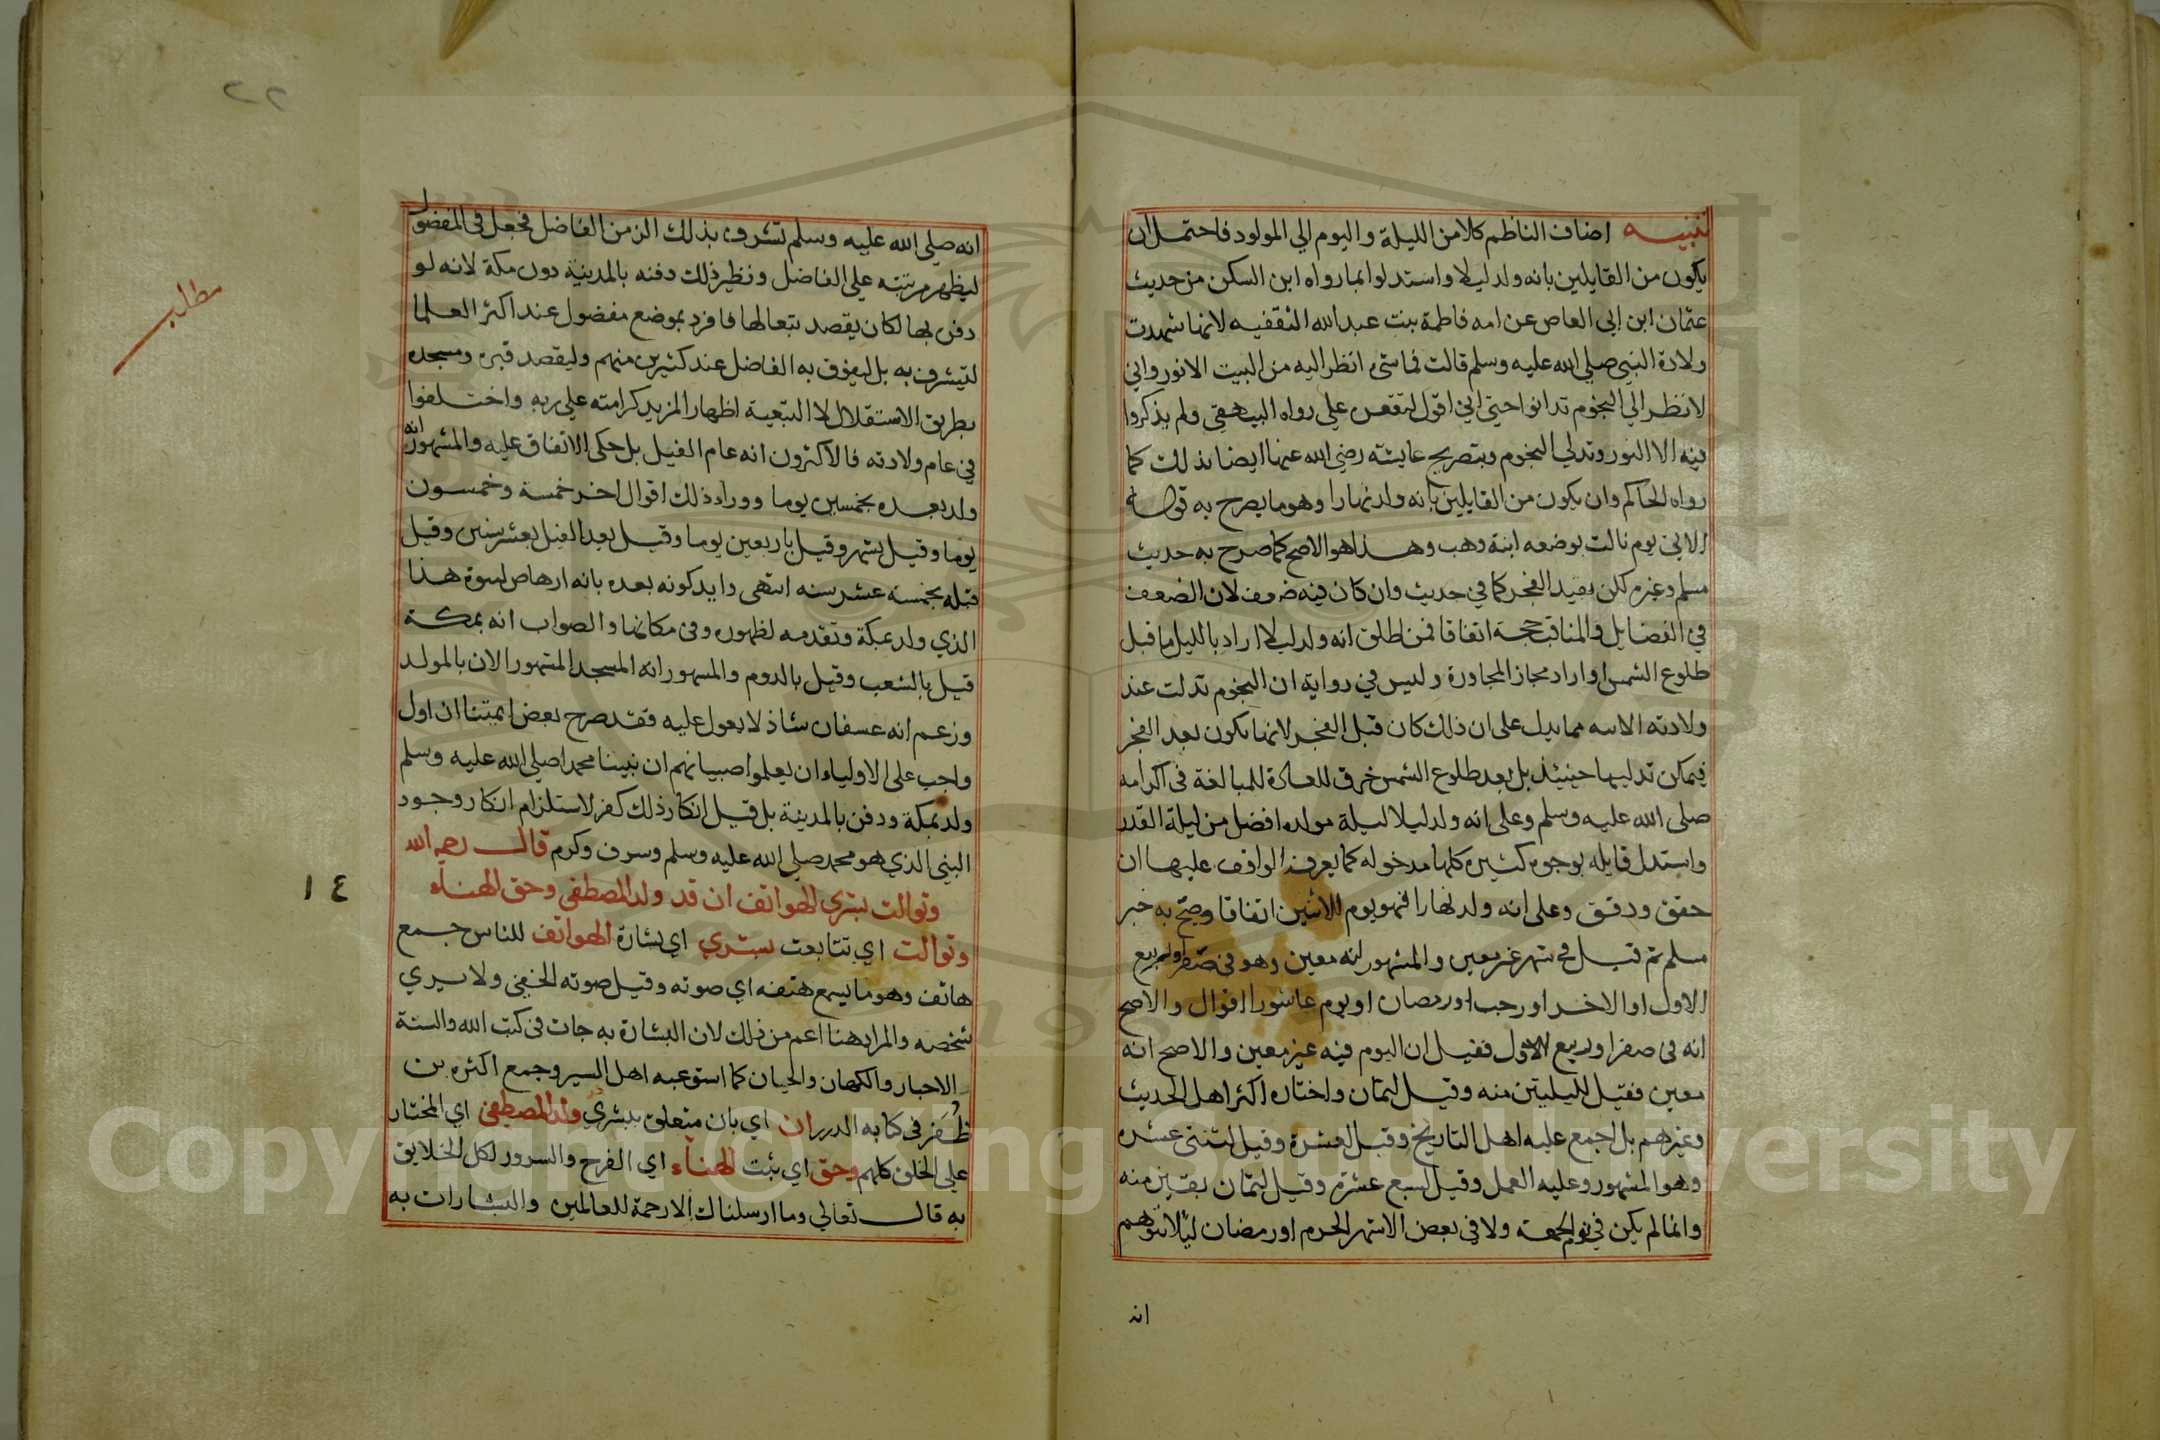 تنبيه اضاف الناظم كلا من الليلة واليوم الي المولود فاحتمل ان
يكون من القايلين بانه ولد ليلا واستدلوا بما رواه ابن السكن من حديث
عثمان ابن ابي العاص عن امه فاطمة بنت عبد الله الثقفيه لانها شهدت
ولادة النبي صلي الله عليه وسلم قالت فما شئ انظر اليه من البيت الا نور واني
لا نظر الي النجوم تدانوا حتي اني اقول لتقعن علي رواه البيهقي ولم يذكروا
فيه الا النور وتدلي النجوم وبتصريح عايشه رضي الله عنها ايضا بذلك كما
رواه الحاكم وان يكون من القايلين بانه ولد نهارا وهو ما يصرح به قوله
الاتي يوم نالت بوضعه ابنة وهب وهذا هو الاصح كما صرح به حديث
مسلم وغيره لكن بقيد الفجر كما في حديث وان كان فيه ضعف لان الضعف
في الفضايل والمناقب حجة اتفاقا فمن اطلق انه ولد ليلا اراد بالليل ما قبل
طلوع الشمس او اراد مجاز المجاورة وليس في رواية ان النجوم تدلت عند
ولادته الاسه مما يدل علي ان ذلك كان قبل الفجر لانها تكون بعد الفجر
فيمكن تدليها حينئذ بل بعد طلوع الشمس خرق للعادة للمبالغة في اكرامه
صلي الله عليه وسلم وعلي انه ولد ليلا ليلة مولده افضل من ليلة القدر
واستدل قايله بوجوه كثيرة كلها مدخوله كما يعرف الواقف عليها ان
حقق ودقق وعلي انه ولد نهارا فهو يوم الاثنين اتفاقا وصح به خبر
مسلم ثم قيل في شهر غير معين والمشهور انه معين وهو في صفر او ربيع
الاول او الاخر او رجب او رمضان او يوم عاشورا اقوال والاصح
انه في صفر او ربيع الاول فقيل ان اليوم فيه غير معين والاصح انه
معين فقيل لليلتين منه وقيل لثمان واختاره اكثر اهل الحديث
وغيرهم بل اجمع عليه اهل التاريخ وقيل لعشرة وقيل لثنتي عشره
وهو المشهور وعليه العمل وقيل لسبع عشرة وقيل لثمان بقين منه
وانما لم يكن في يوم الجمعه ولا في بعض الاشهر الحرم او رمضان ليلا يتوهم
انه
٢٢
انه صلي الله عليه وسلم تشرف بذلك الزمن الفاضل فجعل في المفضول
ليظهر مرتبته علي الفاضل ونظير ذلك دفنه بالمدينة دون مكة لانه لو
دفن بها لكان يقصد تبعا لها فافرد بموضع مفضول عند اكثر العلما
لتيشرف به بل ليفوق به الفاضل عند كثيرين منهم وليقصد قبره ومسجده
بطريق الاستقلال لا التبعية اظهارا لمزيد كرامته علي ربه واختلفوا
في عام ولادته فالاكثرون انه عام الفيل بل حكي الاتفاق عليه والمشهور انه
ولد بعده بخمسين يوما ووراء ذلك اقوال اخر خمسة وخمسون
يوما وقيل بشهر وقيل باربعين يوما وقيل بعد الفيل بعشر سنين وقيل
قبله بخمسة عشر سنه انتهي وايد كونه بعده بانه ارهاص لنبوة هذا
الذي ولد بمكة وتقدمه لظهوره وفي مكانها والصواب انه بمكة
قيل بالشعب وقيل بالدوم والمشهور انه المسجد المشهور الان بالمولد
وزعم انه عسفان شاذ لا يعول عليه فقد صرح بعض ايمتنا ان اول
واجب علي الاولياء ان يعلموا صبيانهم ان نبينا محمدا صلي الله عليه وسلم
ولد بمكة ودفن بالمدينة بل قيل انكار ذلك كفر لاستلزام انكار وجود
النبي الذي هو محمد صلي الله عليه وسلم وشرف وكرم قال رحمه الله
وتوالت بشري الهواتف ان قد ولد المصطفي وحق الهناء
وتوالت اي تتابعت بشري اي بشارة الهواتف للناس جمع
هاتف وهو ما يسمع هتفه اي صوته وقيل صوته الخفي ولا يري
شخصه والمراد هنا اعم من ذلك لان البشارة به جات في كتب الله والسنة
الاحبار والكهان والجان كما استوعبه اهل السير وجمع اكثره بن
ظُفَر في كتابه الدرر ان اي بان متعلق ببشري ولد المصطفي اي المختار
علي الخلق كلهم وحق اي ثبت الهناء اي الفرح والسرور لكل الخلايق
به قال تعالي وما ارسلناك الا رحمة للعالمين والبشارات به
مطلب
١٤
Copyright © King Saud University